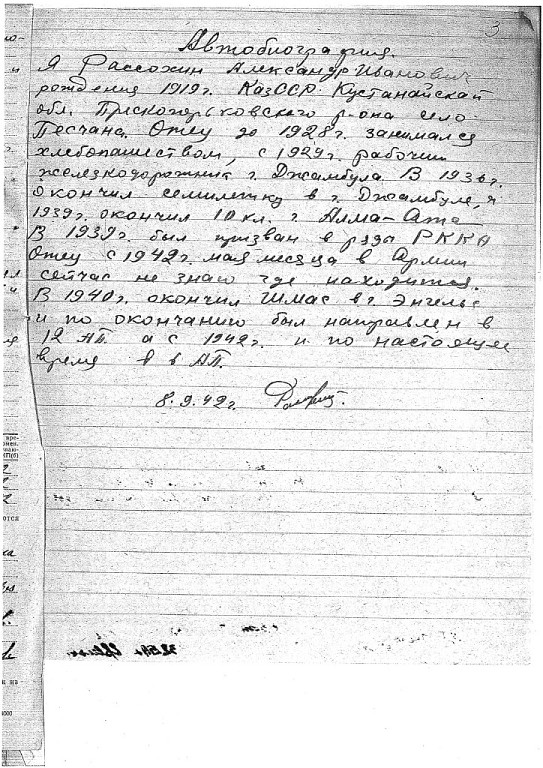 3
Автобиография.
Я Рассохин Александр Иванович
рождения 1919г. КазССР Кустанайской
обл. Пресногорьковского р-она село
Песчанa. Отец до 1928г. занимался
хлебопашеством, с 1929г. рабочий
железнодорожник г. Джамбула. В 1936г.
окончил семилетку в г. Джамбуле, в
1939г. окончил 10 кл. г. Алма-Ата
В 1939г. был призван в ряды РККА
Отец с 1942г. мая месяца в Армии
сейчас не знаю где находится.
В 1940г. окончил ШМАС в г. Энгельс
и по окончанию был направлен в
12 АП. а с 1942г. и по настоящее
время в АП.
8.9.42г.